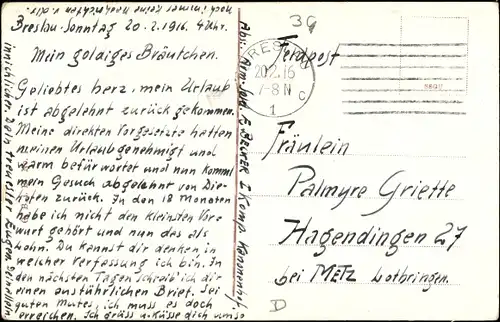 noch immer keine Nachrichten v. dir
Breslau-Sonntag 20.2.1916. 4 Uhr.
Mein goldiges Bräutchen.
Geliebtes herz, mein Urlaub
ist abgelehnt zurück gekommen.
Meine direkten Vorgesetzte hatten
meinen Urlaub genehmigt und
warm befürwortet und nun kommt
mein Gesuch abgelehnt von
zurück. In den 18 Monaten
habe ich nicht den kleinsten Vor-
wurf gehört und nun das als
Lohn. Du kannst dir denken in
welcher Verfassung ich bin. In
den nächsten Tagen schreib ich dir
einen ausführlichen Brief. Sei
guten Mutes, ich muss es doch
erreichen. Ich grüss u. küsse dich umso
innichlicher dein treuester Eugen
Abs: Arm. Sold. E. BECKER I Komp.
39
Feldpost
BRESLAU
20.2.16
7-8 N
C
1
Fräulein
Palmyre Griette
Hagendingen 27
bei METZ Lothringen.
D